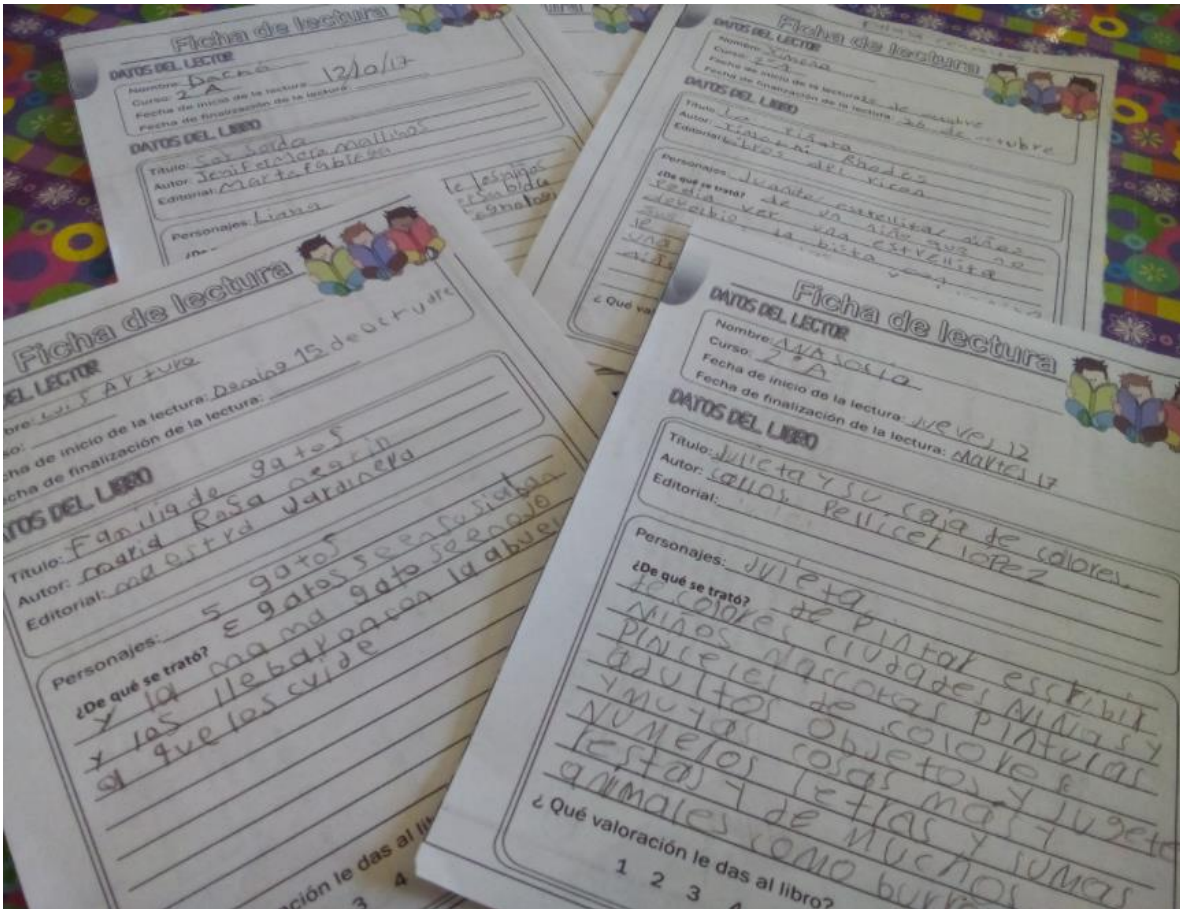 Ficha de lectura
DATOS DEL LECTOR
Nombre: Dacna
Curso: 2 A
Fecha de inicio de la lectura: 12/0/17
Fecha de finalización de la lectura:
DATOS DEL LIBRO
Título: Sorda
Autor: Jenifer Moltra Mallinos
Editorial: Marta fabrega
Personajes: Liana
Ficha de lectura
DATOS DEL LECTOR
Nombre: Ximena
Curso: 2º A
Fecha de inicio de la lectura: de octubre
Fecha de finalización de la lectura: 26 de octubre
DATOS DEL LIBRO
Título: La
Autor: Rhodes
Editorial: Libros del rican
Personajes: Juanito, estrellita, niños
¿De qué se trató? de un niño que no
podia ver una estrellita
devolbio la bista
le
una
¿Qué va
Ficha de lectura
DEL LECTOR
bre: Luis Arturo
so:
cha de inicio de la lectura: Domino 15 de octuvre
echa de finalización de la lectura:
ATOS DEL LIBRO
Título: Familia de gatos
Autor: maria Rosa negrin
Editorial: maestra Jardinera
Personajes: 5 gatos
¿De qué se trató? gatos se ensusiaban
y la mama gato se enojo
y los llebaron con la abuel
a que los cuide
ación le das al lib
3 4
Ficha de lectura
DATOS DEL LECTOR
Nombre: ANA Sosia
Curso: 2º A
Fecha de inicio de la lectura: jueves 12
Fecha de finalización de la lectura: Martes 17
DATOS DEL LIBRO
Título: Julieta y su caja de colores
Autor: carlos Pellicer lópez
Editorial:
Personajes: Julieta,
¿De qué se trató? de Pintar escribir
de colores ciudades Niñas y
Niños Mascotas Pinturas
Pinceles de colores
adultos Objetos y Jugete
y mutas cosas mas y
Numeros letras y sumas
restas y de muchos
animales como burro
¿Qué valoración le das al libro?
1 2 3 4